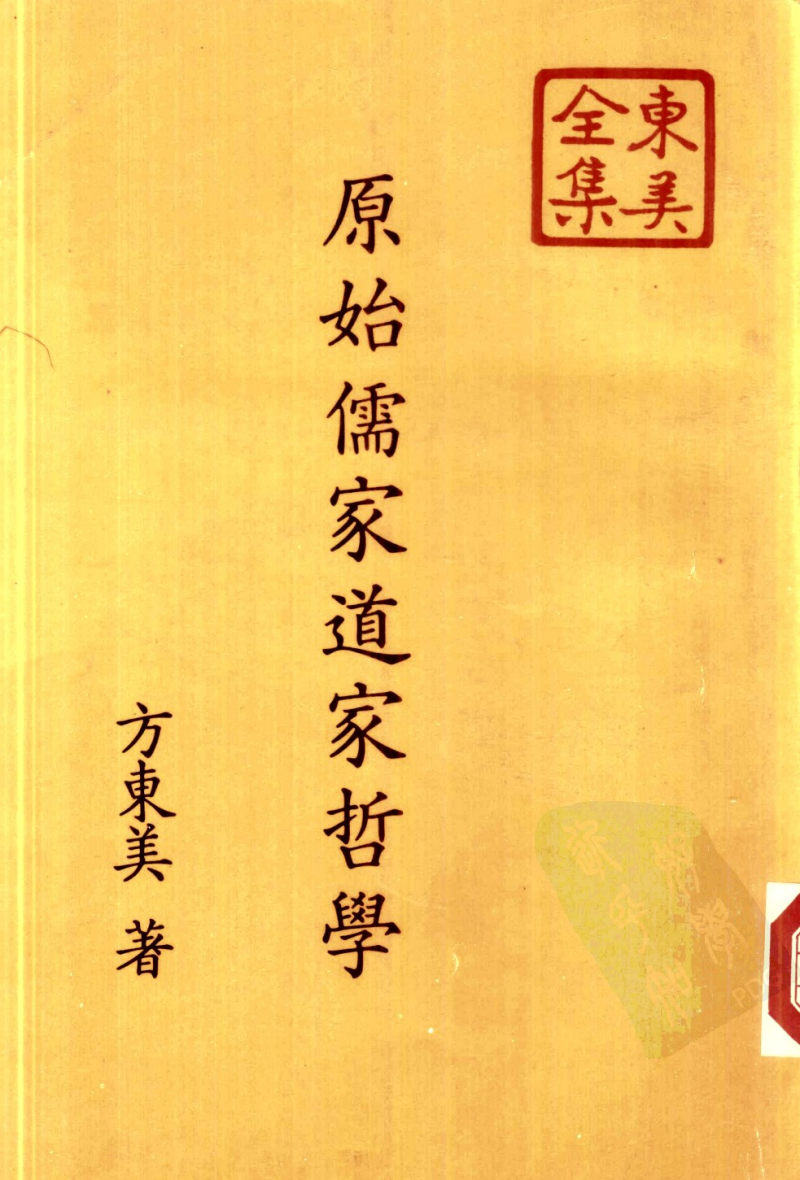 東美
全集
原始儒家道家哲學
方東美 著